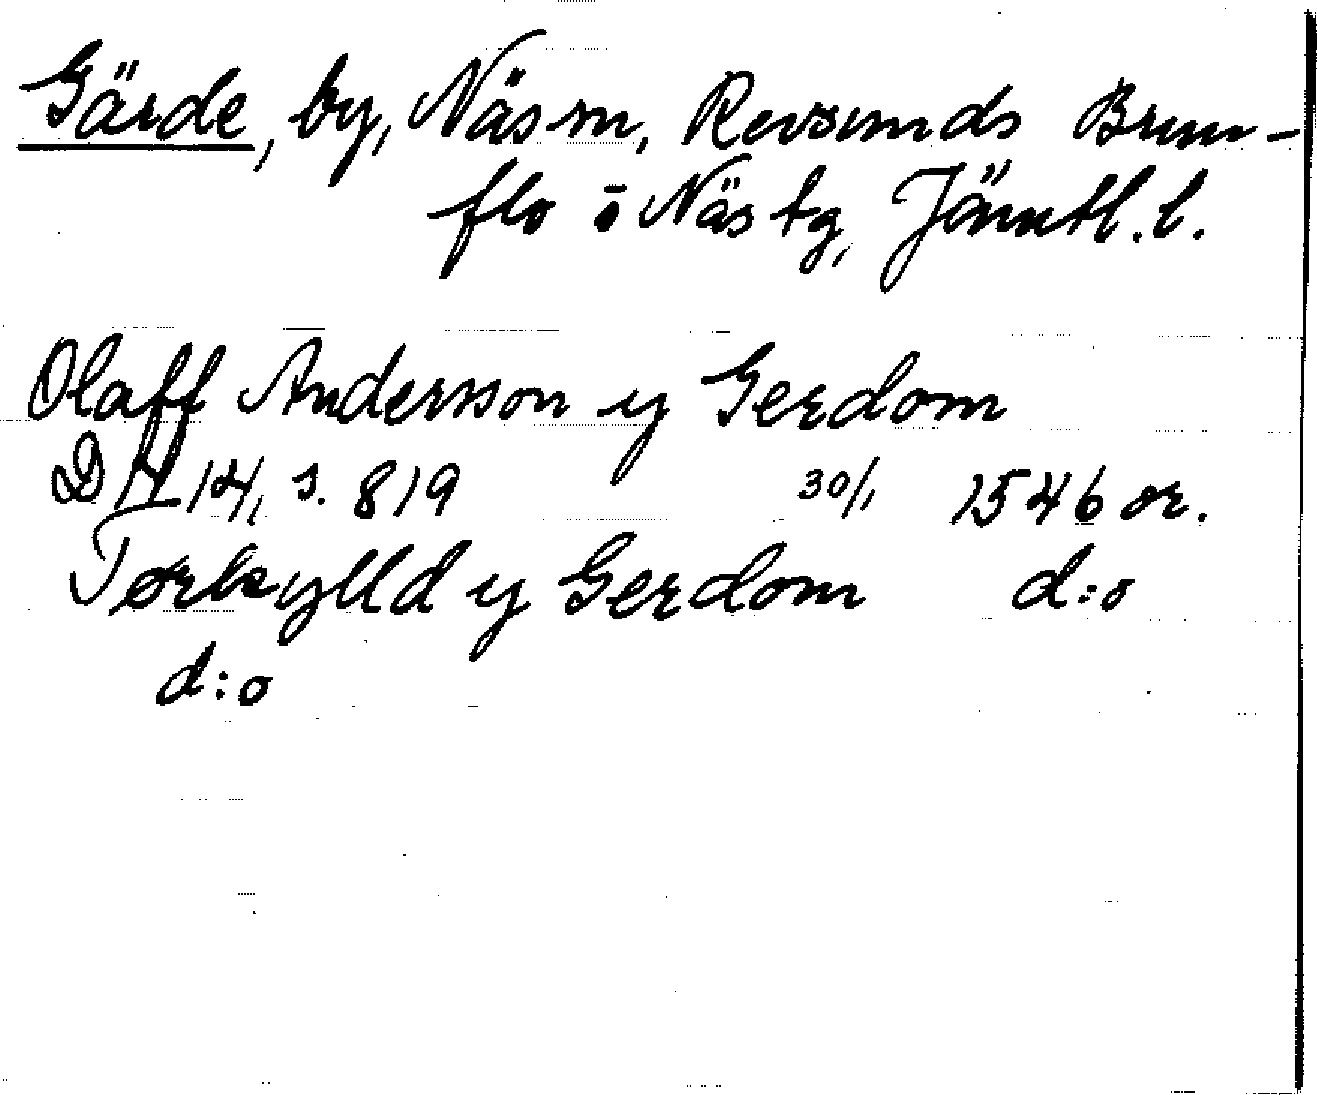 Gärde, by, Näs sn, Revsunds Brun-
flo o Näs tg, Jämtl. l.
Olaff Andersson y Gerdom
DN 14, s. 819 30/1 1546 or.
Torkylld y Gerdom d:o
d:o